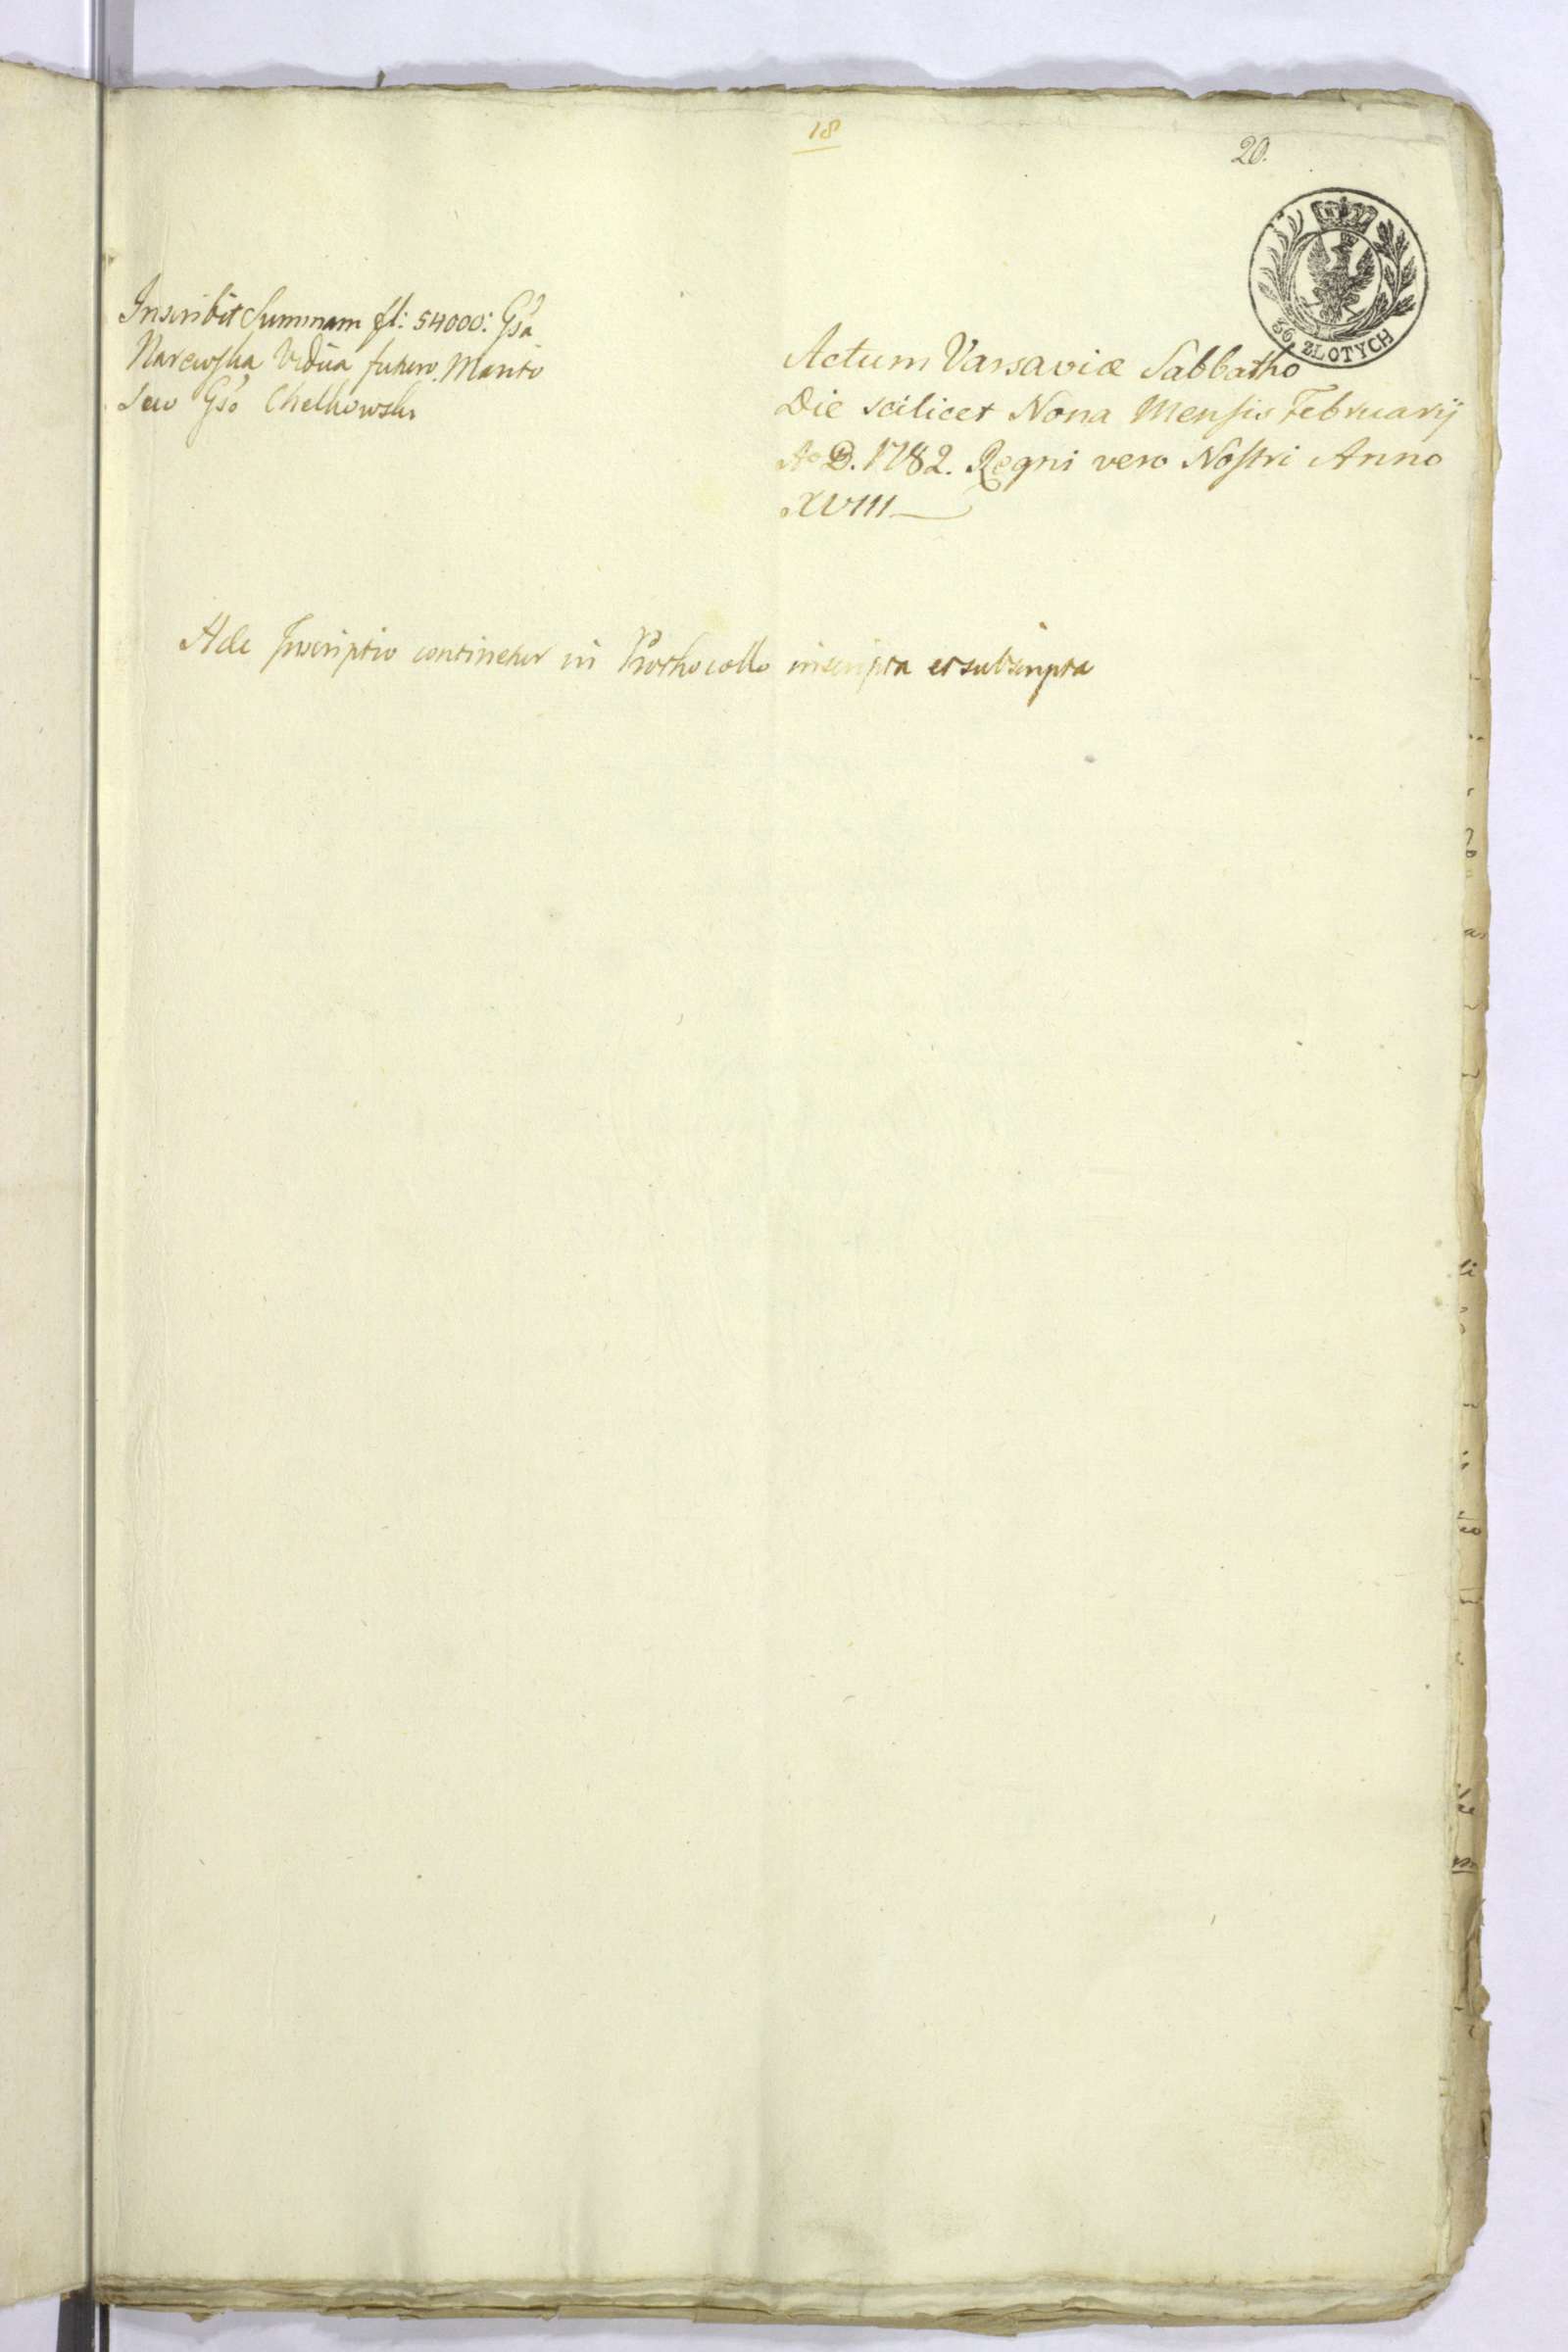 18
20.
36 ZLOTYCH
Inscribit Summam fl: 54000: Gsa
Narewska Vidua futuro Marito
Suo Gso Chelkowski
Actum Varsaviæ Sabbatho
Die scilicet Nona Mensis Februarij
Ao D. 1782. Regni vero Nostri Anno
XVIII
Inscriptio continetur in Prothocollo inscripta et subscripta